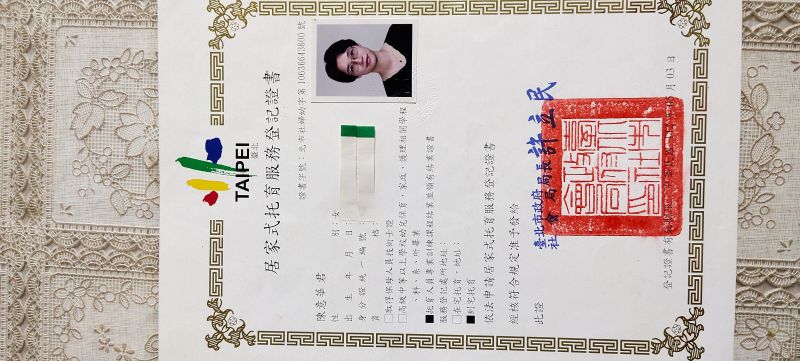 TAIPEI
臺北
居家式托育服務登記證書
證書字號：北市社婦幼字第10636643600號
陳意華君
性別：女
出生年月日：
身分證統一編號：
資格：
□取得保母人員技術士證
□高級中等以上學校幼兒保育、家政、護理相關學程
、科、系、所畢業
■托育人員專業訓練課程結業並領有結業證書
服務登記處所地址：
□在宅托育，地址：
■到宅托育
依法申請居家式托育服務登記證書
經核符合規定准予發給
此證
臺北市政府
社會局局長許立民
登記證書有
03日